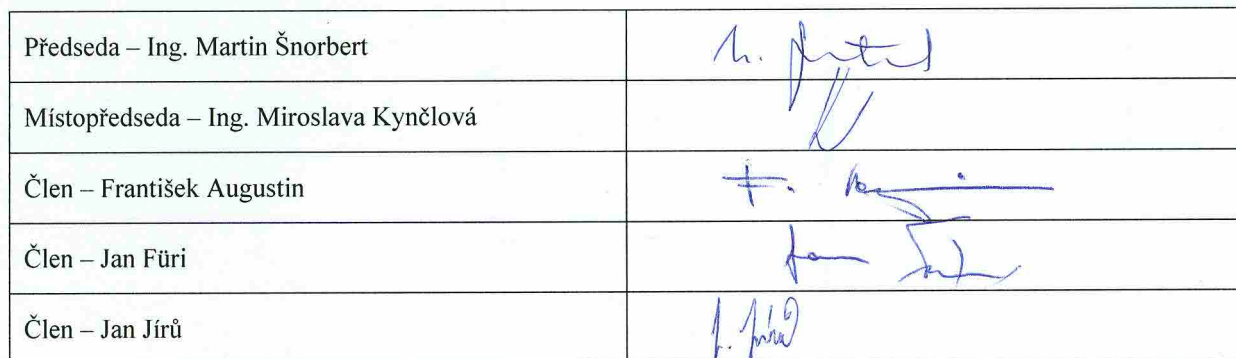 Předseda – Ing. Martin Šnorbert
Místopředseda – Ing. Miroslava Kynčlová
Člen – František Augustin
Člen – Jan Füri
Člen – Jan Jírů